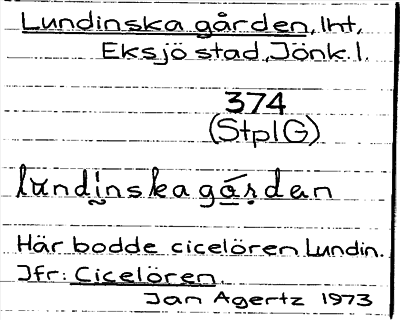 Lundinska gården, lht,
Eksjö stad, Jönk. l.
374
(Stpl G)
lundinskagórdan
Här bodde cicelören Lundin.
Jfr: Cicelören.
Jan Agertz 1973